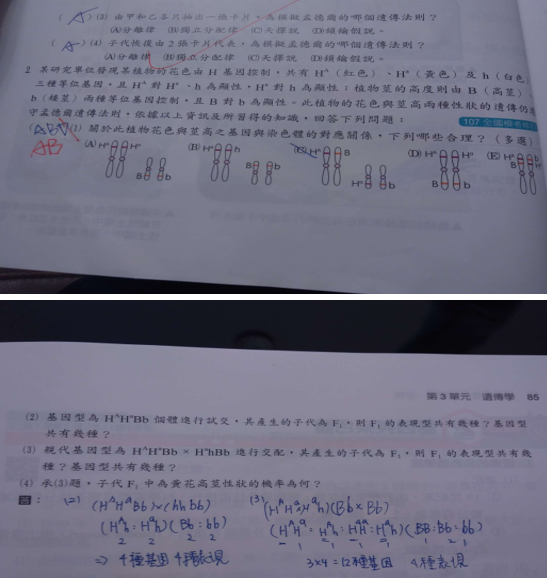 (A)(3) 由甲和乙各只抽出一張卡片，為模擬孟德爾的哪個遺傳法則？
(A)分離律 (B)獨立分配律 (C)天擇說 (D)鎖鑰假說。
(A)(4) 子代恢復由2張卡片代表，為模擬孟德爾的哪個遺傳法則？
(A)分離律 (B)獨立分配律 (C)天擇說 (D)鎖鑰假說。
2 某研究單位發現某植物的花色由 H 基因控制，共有 Hᴬ（紅色）、Hᵃ（黃色）及 h（白色
三種等位基因，且 Hᴬ 對 Hᵃ、h 為顯性，Hᵃ 對 h 為顯性；植物莖的高度則由 B（高莖）
b（矮莖）兩種等位基因控制，且 B 對 b 為顯性。此植物的花色與莖高兩種性狀的遺傳仍遵
守孟德爾遺傳法則，依據以上資訊及所習得的知識，回答下列問題：
107 全國模考
(1) 關於此植物花色與莖高之基因與染色體的對應關係，下列哪些合理？（多選）
AB
(A) Hᴬ Hᵃ B b
(B) Hᴬ h B b
(C) Hᴬ B Hᵃ b
(D) Hᴬ Hᵃ B b
(E) Hᴬ
第 3 單元 遺傳學 85
(2) 基因型為 HᴬHᵃBb 個體進行試交，其產生的子代為 F₁，則 F₁ 的表現型共有幾種？基因型
共有幾種？
(3) 親代基因型為 HᴬHᵃBb × HᵃhBb 進行交配，其產生的子代為 F₁，則 F₁ 的表現型共有幾
種？基因型共有幾種？
(4) 承(3)題，子代 F₁ 中為黃花高莖性狀的機率為何？
答：
(2) (HᴬHᵃBb)×(hhbb)
(Hᴬh : Hᵃh)(Bb : bb)
2 2 2 2
⇒ 4種基因 4種表現
(3)
(HᴬHᵃ×Hᵃh)(Bb×Bb)
(HᴬHᵃ : Hᴬh : HᵃHᵃ : Hᵃh)(BB : Bb : bb)
3×4=12種基因 4種表現